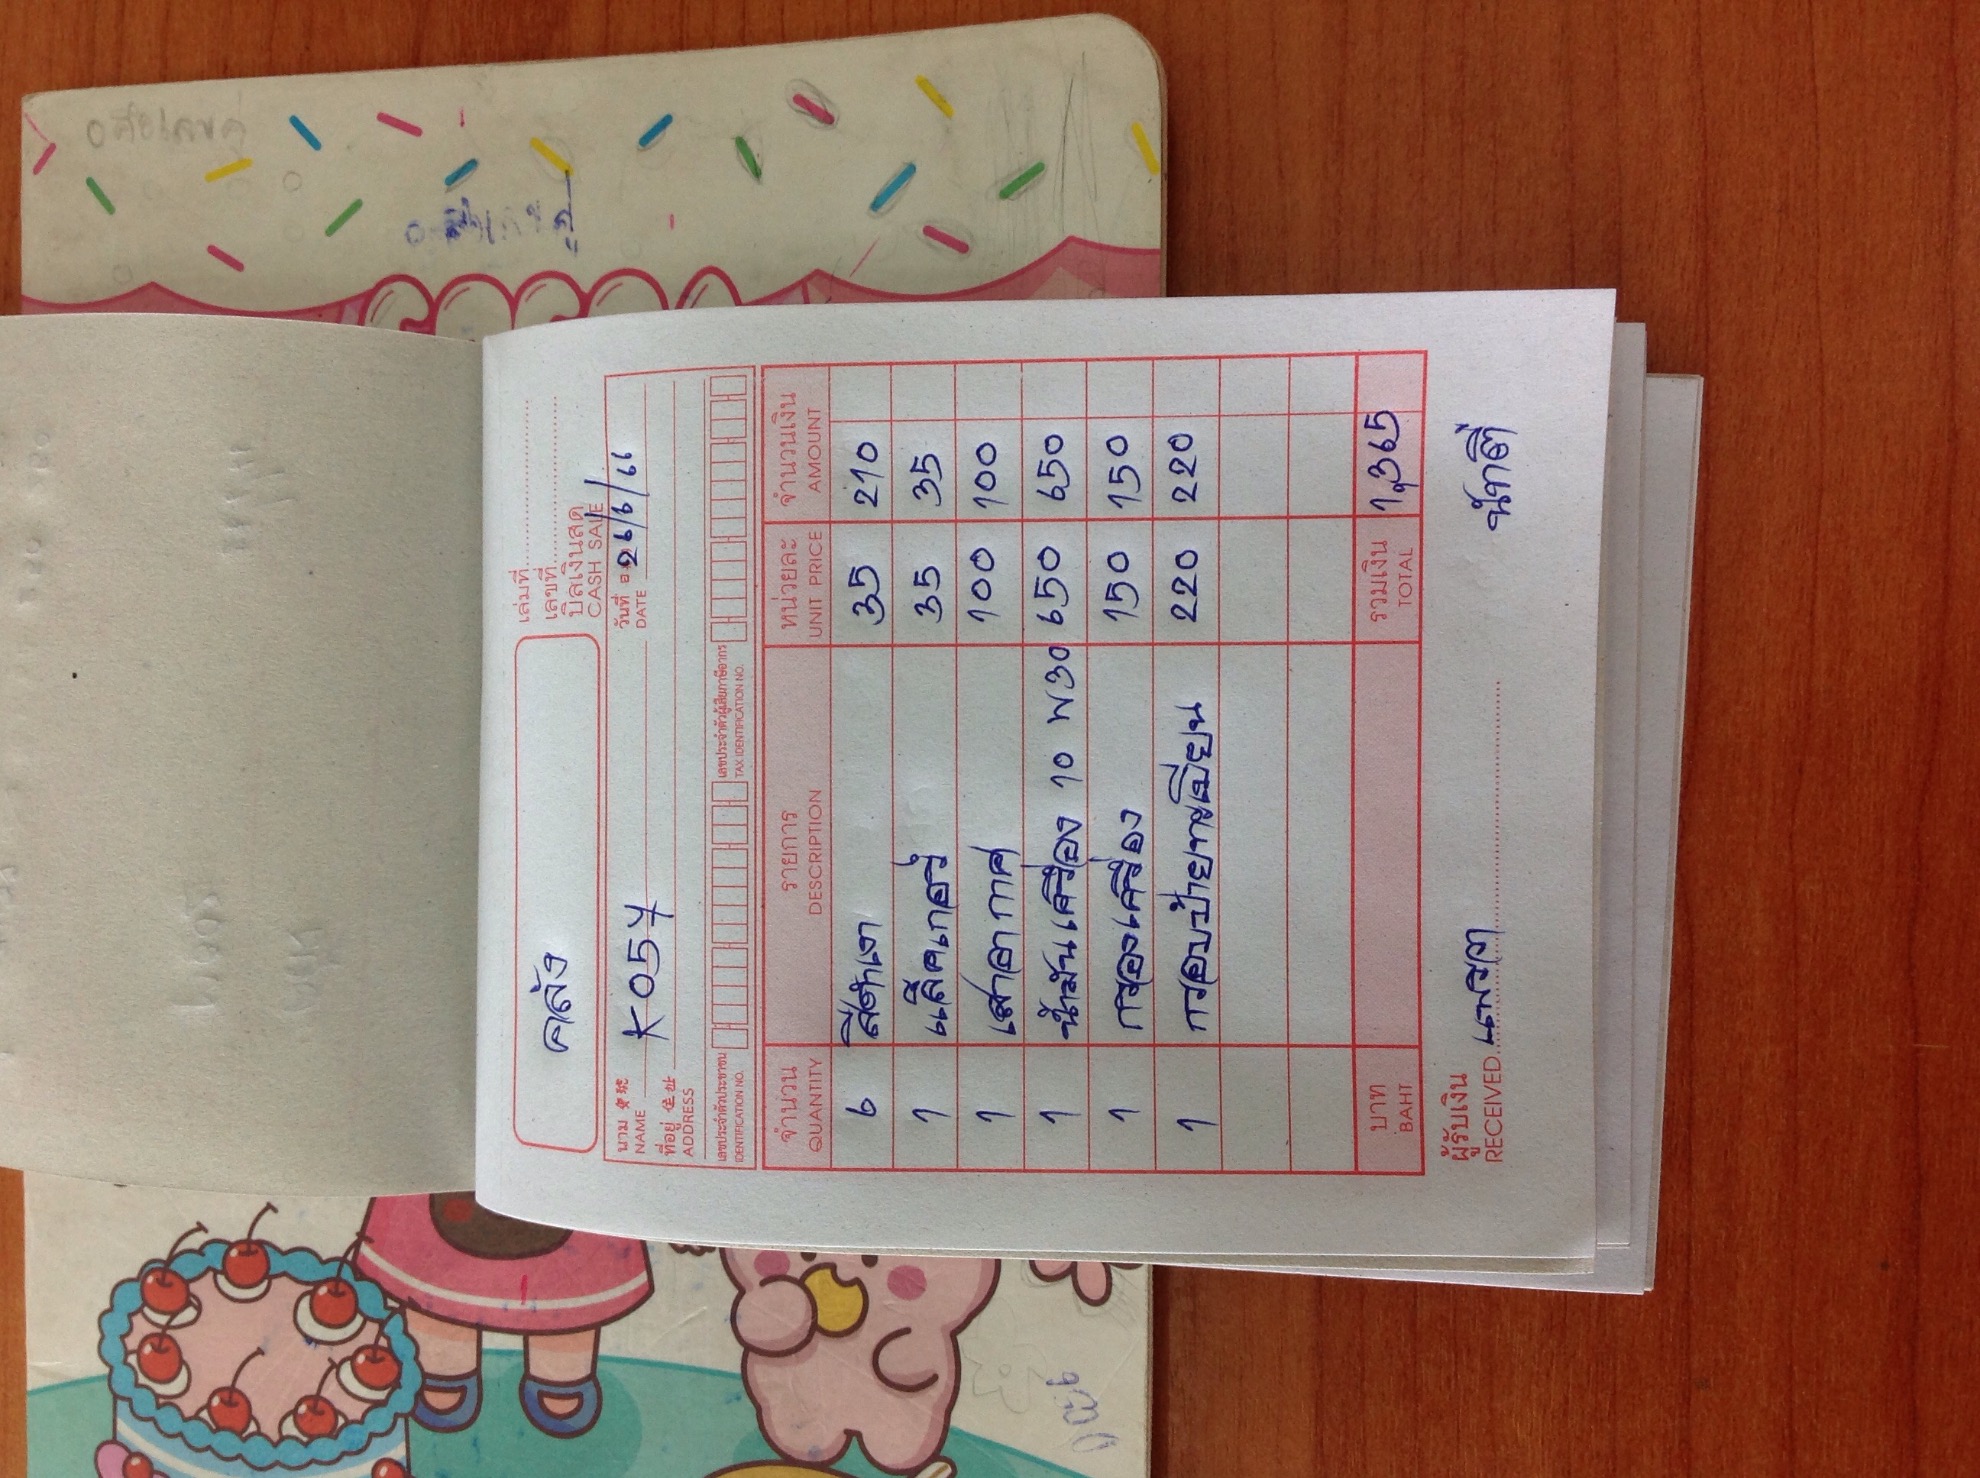 คลัง
เล่มที่
เลขที่
บิลเงินสด
CASH SALE
นาม
NAME
K057
วันที่
DATE
26/6/66
ที่อยู่
ADDRESS
เลขประจำตัวประชาชน
IDENTIFICATION NO.
เลขประจำตัวผู้เสียภาษีอากร
TAX IDENTIFICATION NO.
จำนวน รายการ หน่วยละ จำนวนเงิน
QUANTITY DESCRIPTION UNIT PRICE AMOUNT
6 สีดำเงา 35 210
1 แล็คเกอร์ 35 35
1 เสาอากาศ 100 100
1 น้ำมันเครื่อง 10 W30 650 650
1 กรองเครื่อง 150 150
1 กรอบป้ายทะเบียน 220 220
บาท รวมเงิน 1,365
BAHT TOTAL
ผู้รับเงิน
RECEIVED